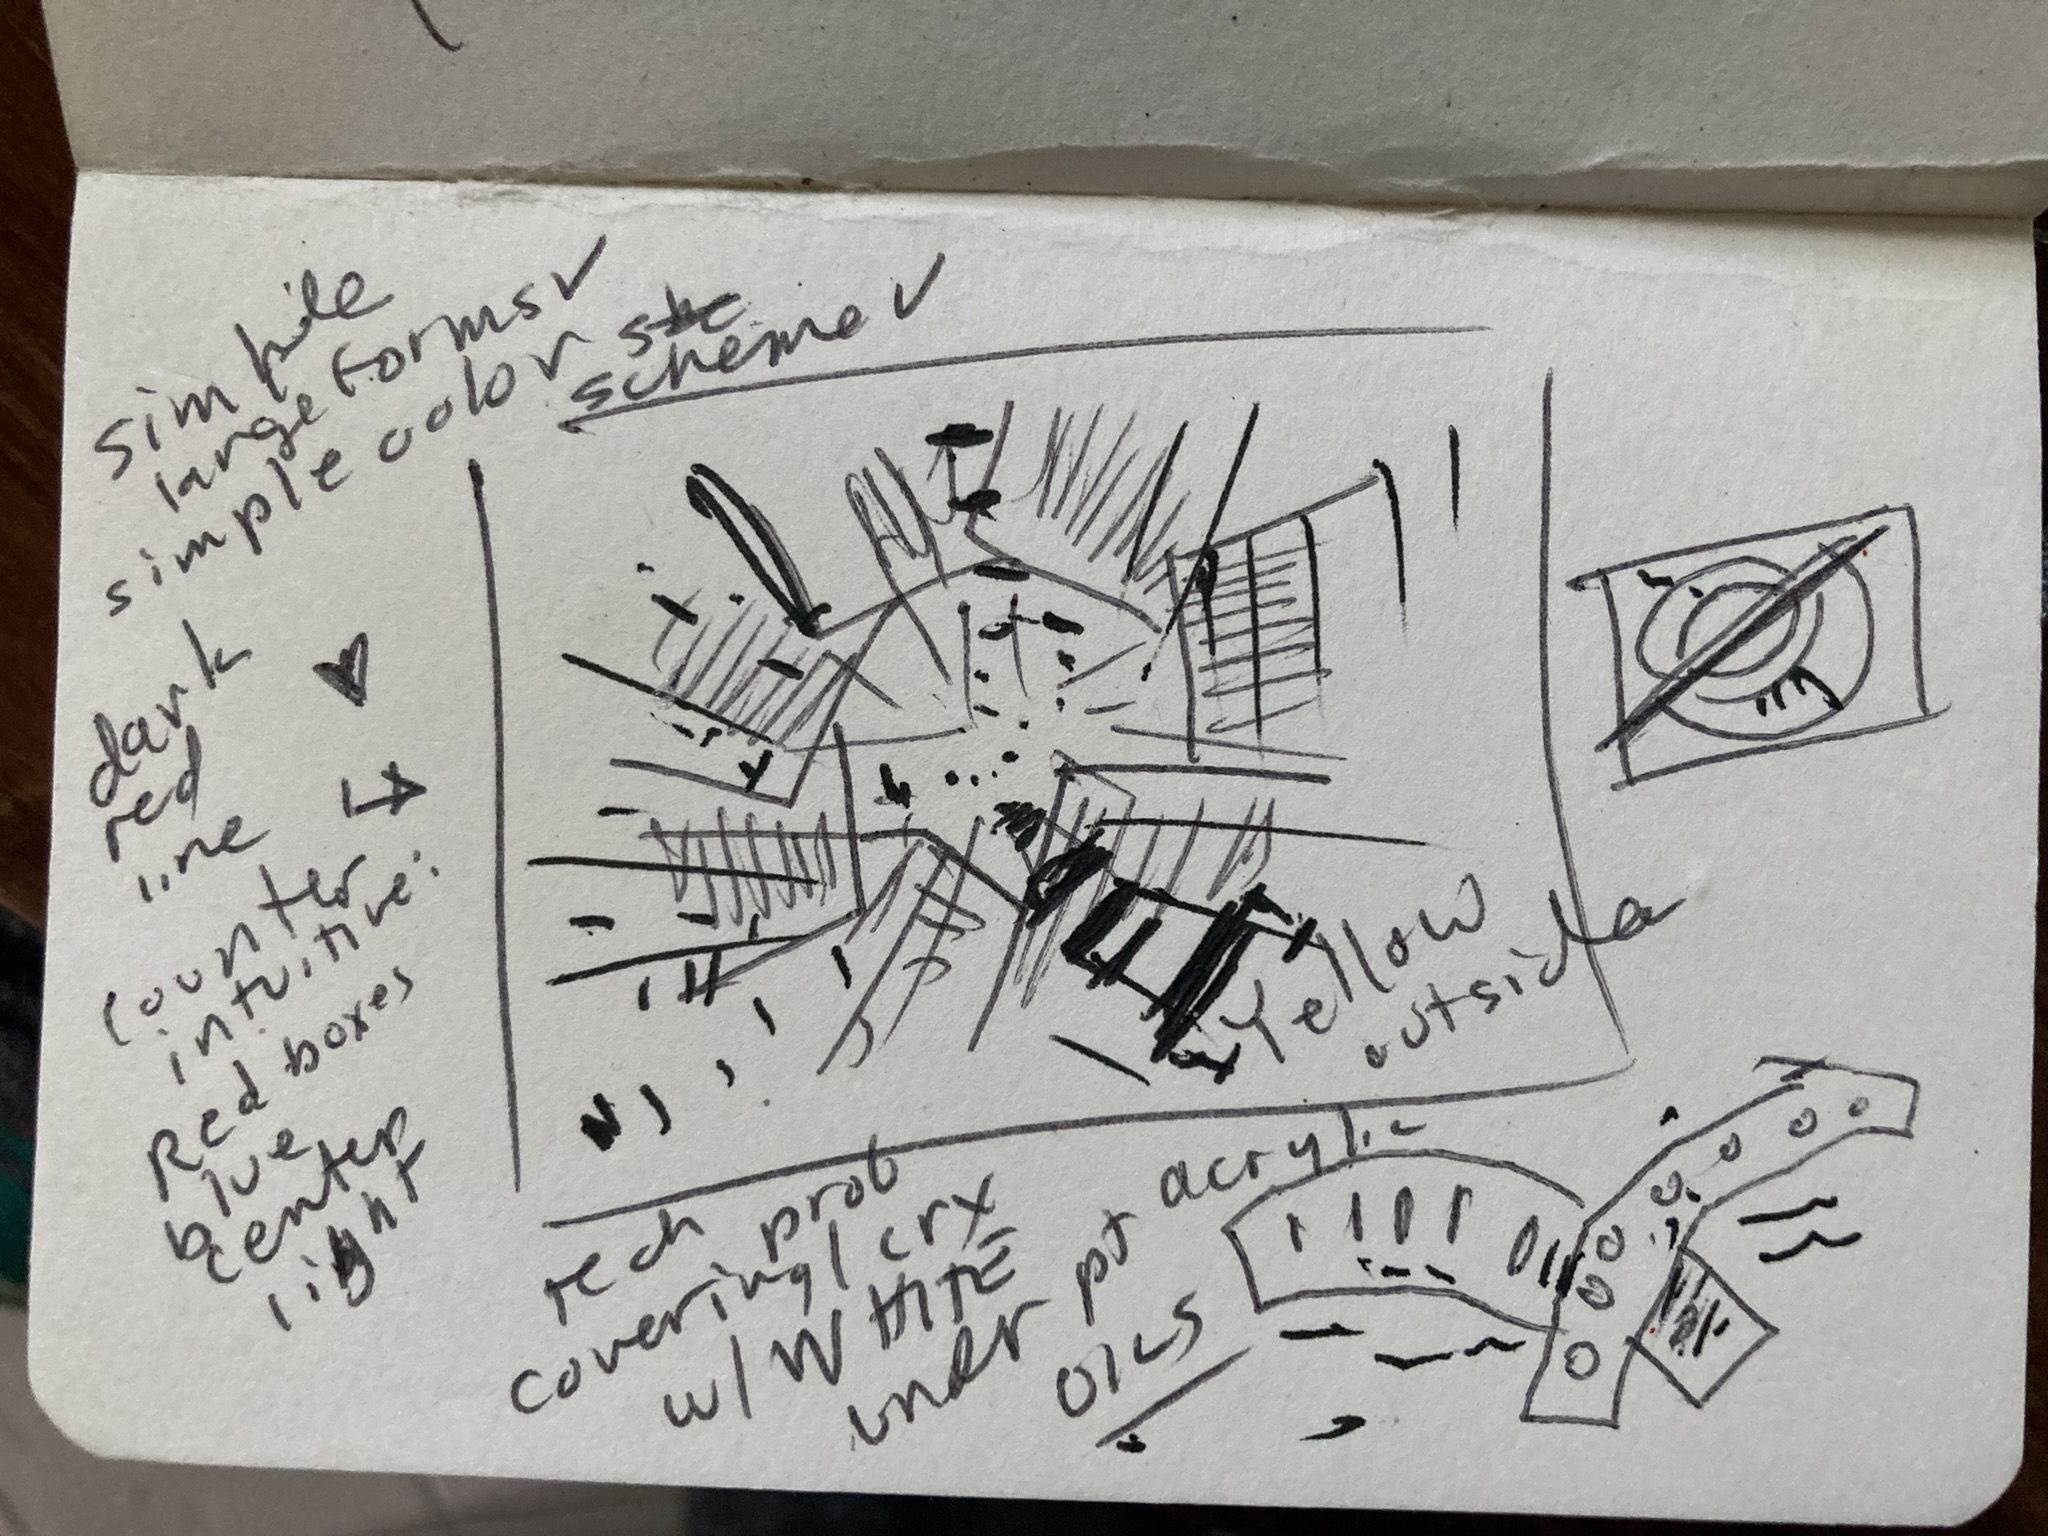 simple
large forms ✓
simple color sc
scheme ✓
dark
red
line
counter
intuitive:
Red boxes
blue
center
light
Yellow
outside
tech prob
covering / crx
w/ WHITE
undr pt acrylic
OILS